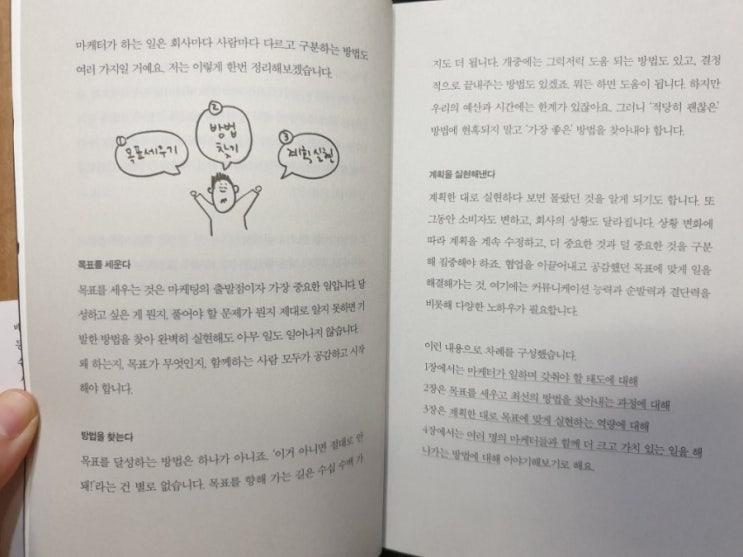 마케터가 하는 일은 회사마다 사람마다 다르고 구분하는 방법도
여러 가지일 거예요. 저는 이렇게 한번 정리해보겠습니다.
① 목표세우기
② 방법
찾기
③ 계획실현
목표를 세운다
목표를 세우는 것은 마케팅의 출발점이자 가장 중요한 일입니다. 달
성하고 싶은 게 뭔지, 풀어야 할 문제가 뭔지 제대로 알지 못하면 기
발한 방법을 찾아 완벽히 실현해도 아무 일도 일어나지 않습니다.
왜 하는지, 목표가 무엇인지, 함께하는 사람 모두가 공감하고 시작
해야 합니다.
방법을 찾는다
목표를 달성하는 방법은 하나가 아니죠. '이거 아니면 절대로 안
돼!'라는 건 별로 없습니다. 목표를 향해 가는 길은 수십 수백 가
지도 더 됩니다. 개중에는 그럭저럭 도움 되는 방법도 있고, 결정
적으로 끝내주는 방법도 있겠죠. 뭐든 하면 도움이 됩니다. 하지만
우리의 예산과 시간에는 한계가 있잖아요. 그러니 '적당히 괜찮은'
방법에 현혹되지 말고 '가장 좋은' 방법을 찾아내야 합니다.
계획을 실현해낸다
계획한 대로 실현하다 보면 몰랐던 것을 알게 되기도 합니다. 또
그동안 소비자도 변하고, 회사의 상황도 달라집니다. 상황 변화에
따라 계획을 계속 수정하고, 더 중요한 것과 덜 중요한 것을 구분
해 집중해야 하죠. 협업을 이끌어내고 공감했던 목표에 맞게 일을
해결해가는 것, 여기에는 커뮤니케이션 능력과 순발력과 결단력을
비롯해 다양한 노하우가 필요합니다.
이런 내용으로 차례를 구성했습니다.
1장에서는 마케터가 일하며 갖춰야 할 태도에 대해
2장은 목표를 세우고 최선의 방법을 찾아내는 과정에 대해
3장은 계획한 대로 목표에 맞게 실현하는 역량에 대해
4장에서는 여러 명의 마케터들과 함께 더 크고 가치 있는 일을 해
나가는 방법에 대해 이야기해보기로 해요.